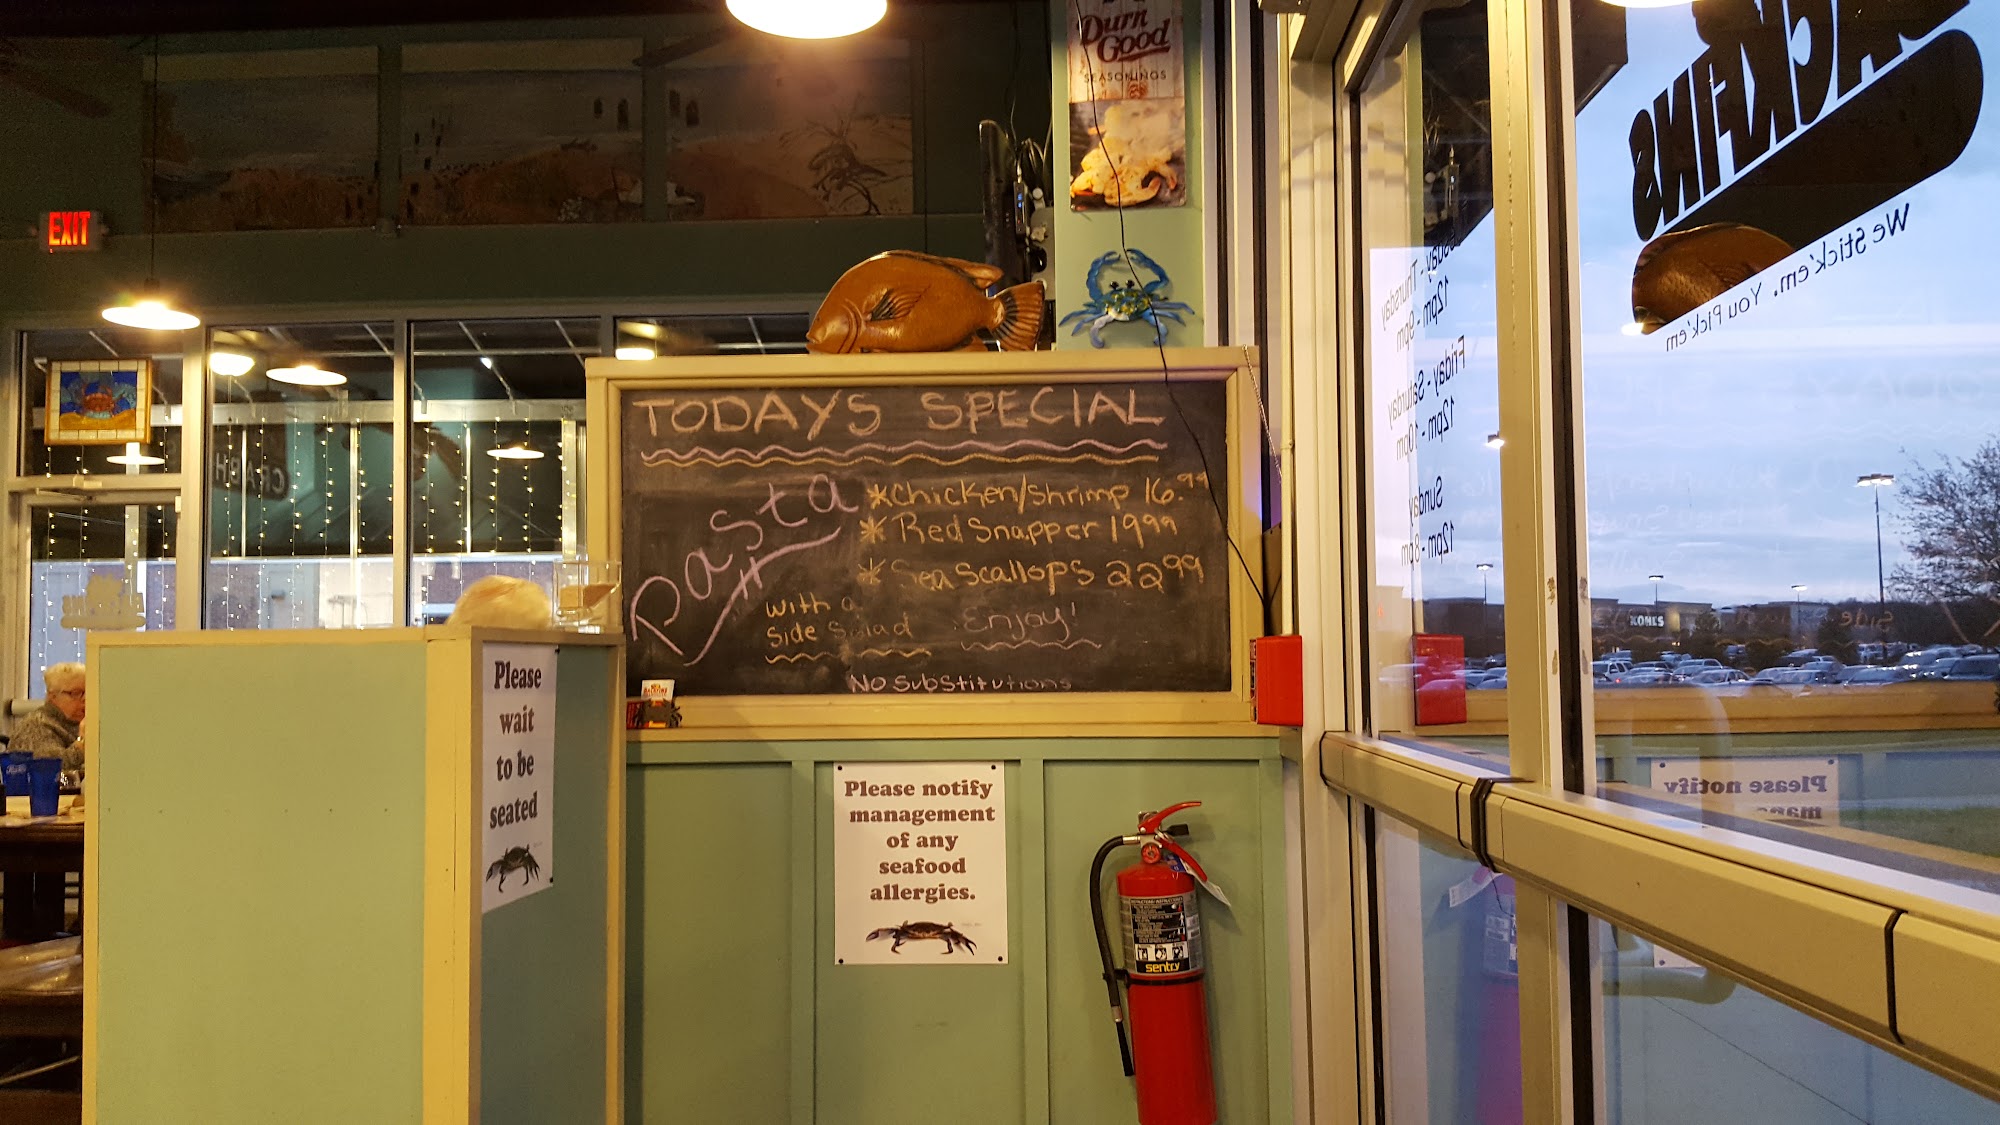 Durn
Good
SEASONINGS
EXIT
TODAYS SPECIAL
Pasta
*Chicken/Shrimp 16.99
* Red Snapper 1999
* Sea Scallops 2299
with a
side Salad
Enjoy!
No Substitutions
Please
wait
to be
seated
Please notify
management
of any
seafood
allergies.
sentry
ACKFINS
We Stick'em. You Pick'em
sday - Thursday
12pm - 9pm
Friday - Saturday
12pm - 10pm
Sunday
12pm - 8pm
KOHL'S
Please notify